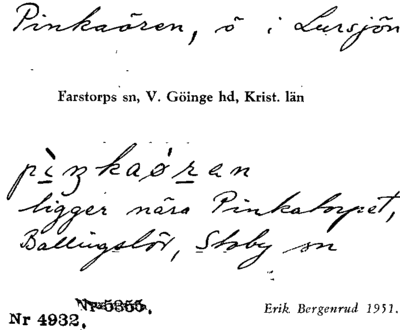 Pinkaören, ö i Lursjön
Farstorps sn, V. Göinge hd, Krist. län
pìŋkaø̀ran
ligger nära Pinkatorpet,
Ballingslöv, Stoby sn
Nr 5355.
Nr 4932.
Erik Bergenrud 1951.